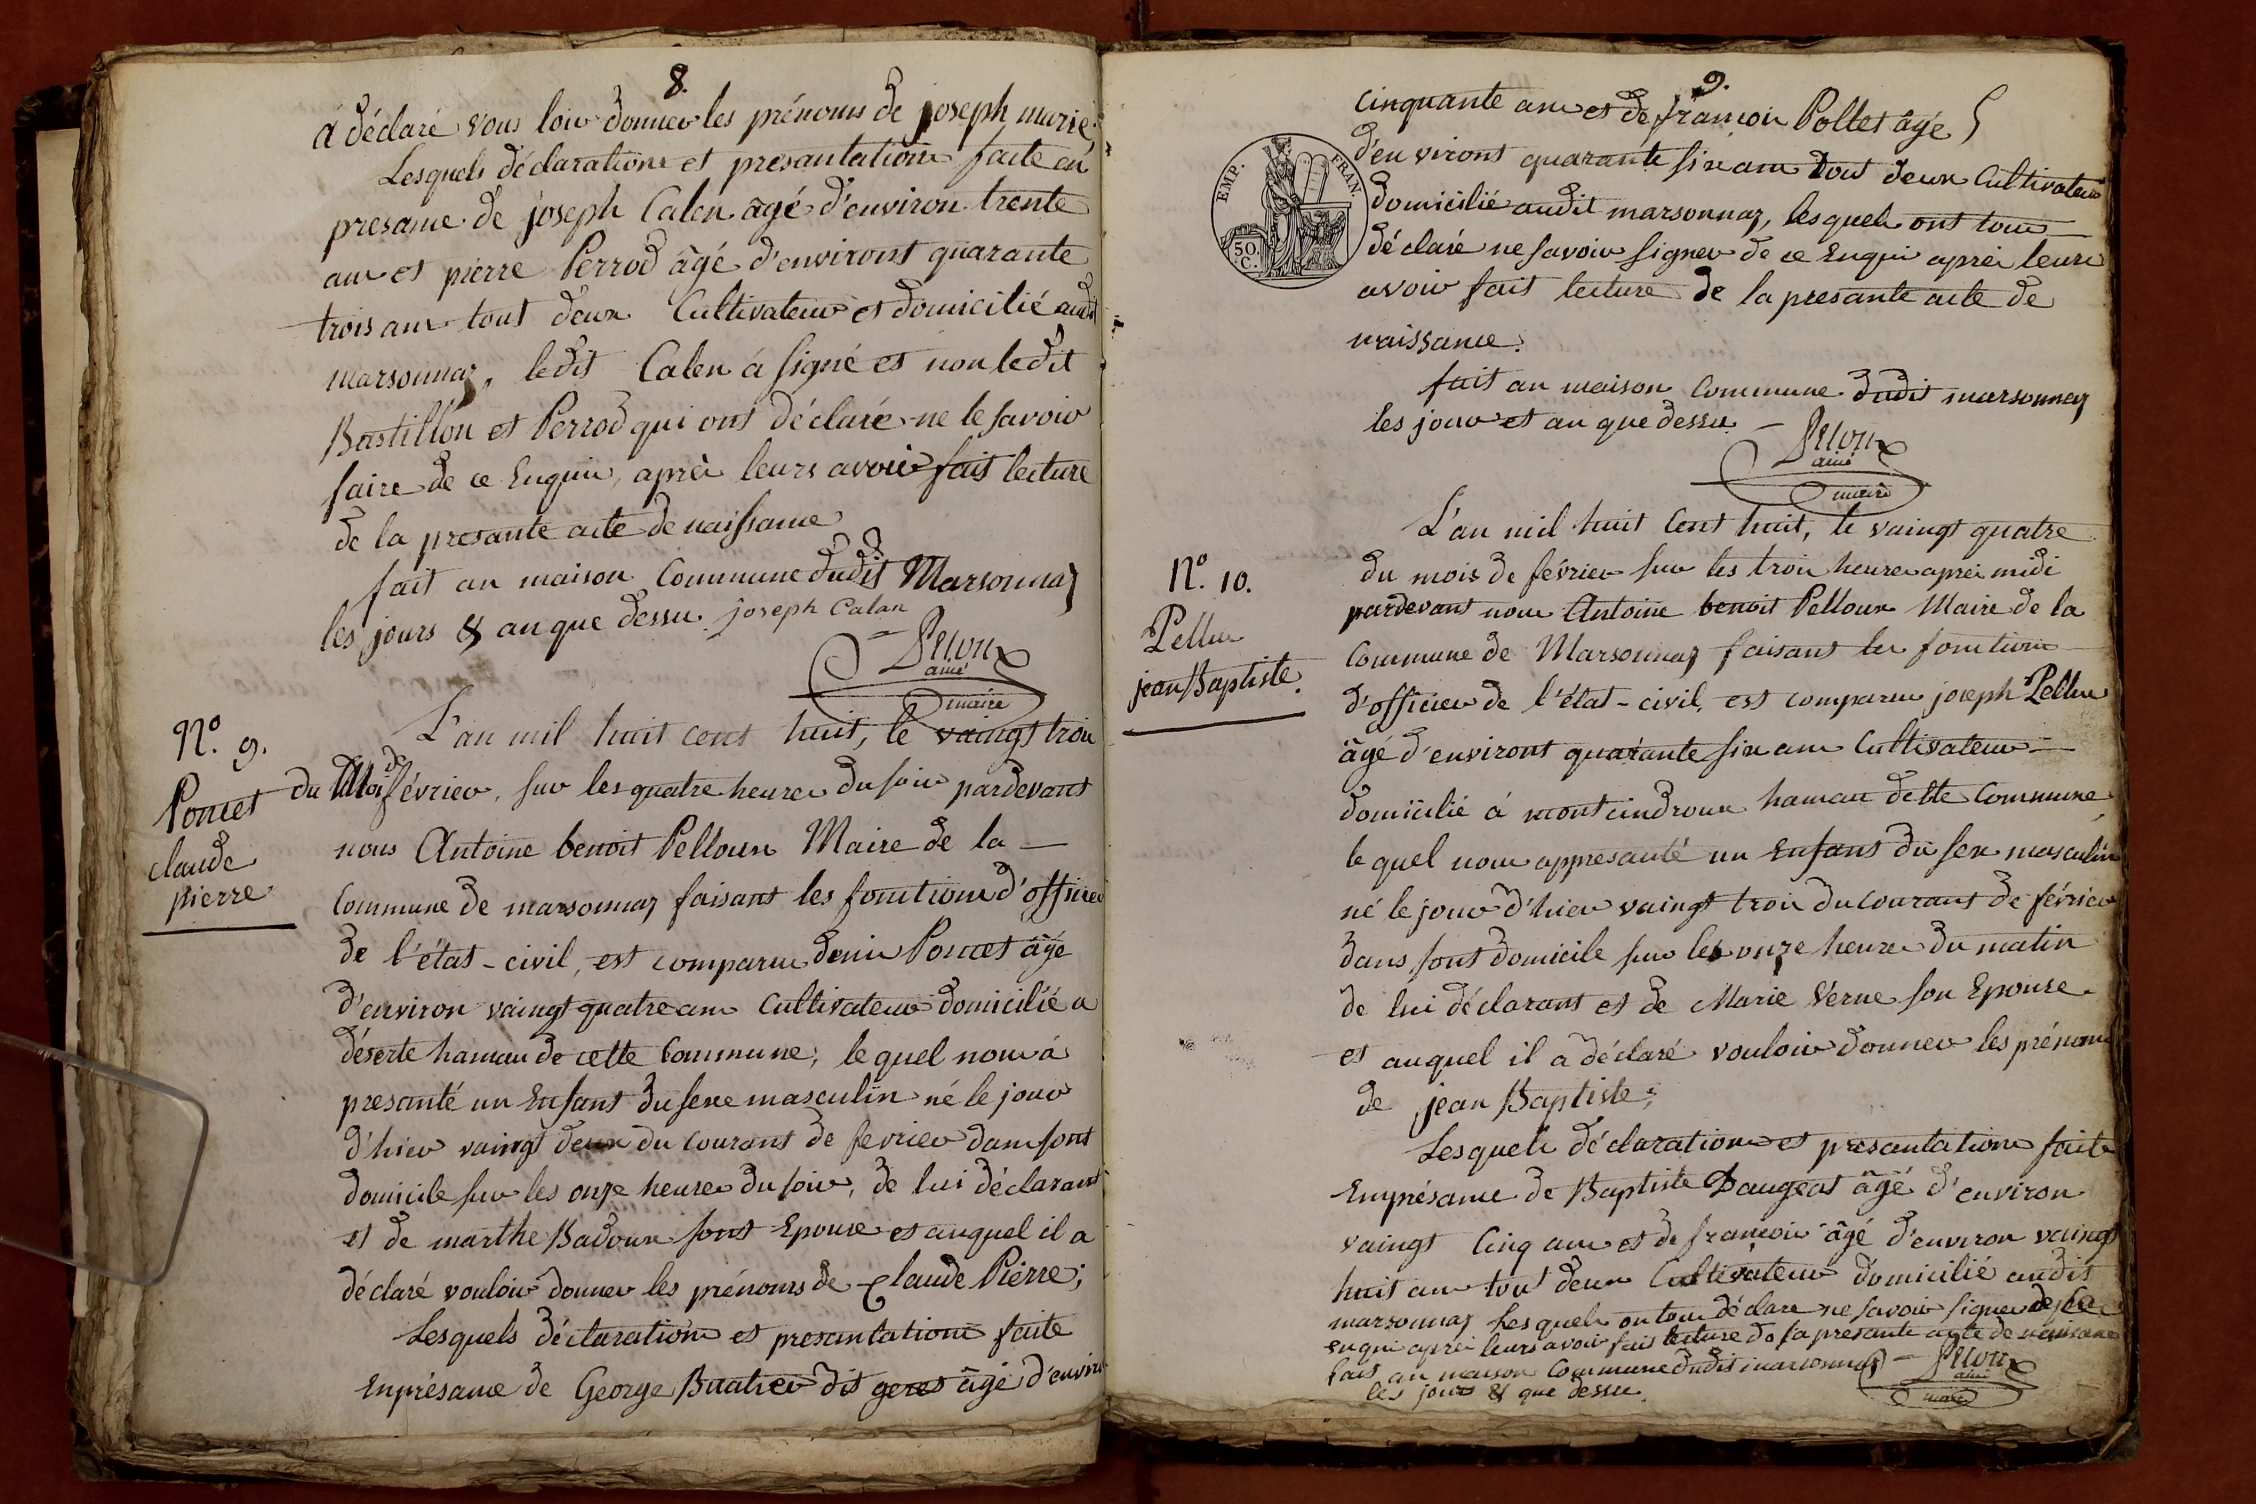 8.
a déclaré vous loir donner les prénoms de joseph marie.
Lesquels déclarations et presantations faite en
presance de joseph Calen âgé d'environ trente
ans et pierre Perrod âgé d'environt quarante
trois ans tout deux Cultivateur et domicilié audit
marsonnaz, ledit Calen á signé et non ledit
Bastillon et Perrod qui ont déclaré ne le savoir
faire de ce Enquis, après leurs avoir fait lecture
de la presante acte de naissance
fait an maison Commune dudit Marsonnaz
les jours & an que dessu. joseph Calan
ainé
maire
N.º 9.
Poncet
claude
pierre
L'an mil huit cent huit, le vaingt trois
du Moi de février, sur les quatre heures du soir pardevant
nous Antoine benoit Pelloux Maire de la —
Commune de marsonnaz faisant les fonctions d'officier
de l'état-civil, est comparu denis Poncet âgé
d'environ vaingt quatre ans Cultivateur domicilié a
déserte hamau de cette Commune, le quel nous á
presanté un Enfant du sexe masculin né le jour
d'hier vaingt deux du courant de fevrier dans sont
domicile sur les onze heures du soir, de lui déclarant
et de marthe Badoux sont Epouse et auquel il a
déclaré vouloir donner les prénoms de Claude Pierre;
Lesquels déclarations et presantations faite
Enprésance de George Buatier dit geret âgé d'environ
9.
Cinquante ans et de françois Pollet âgé
d'environt quarante six ans tout deux Cultivateur
domicilié audit marsonnaz, lesquels ont tous
déclaré ne savoir signer de ce Enquis après leurs
avoir fait lecture de la presante acte de
naissance.
fait an maison Commune dudit marsonnaz
les jour et an que dessu —
ainé
maire
EMP. FRAN.
50.
C.
N.º 10.
Pellux
jean Baptiste.
L'an mil huit Cent huit, le vaingt quatre
du mois de février sur les trois heures après midi
pardevant nous Antoine benoit Pelloux Maire de la
Commune de Marsonnaz faisant les fonctions
d'officier de l'état-civil, est comparu joseph Pellux
âgé d'environt quarante six ans Cultivateur —
domicilié á montcindroux hamau de cette Commune,
le quel nous appresanté un Enfant du sexe masculin
né le jour d'hier vaingt trois du courant de février
dans sont domicile sur les onze heures du matin
de lui déclarant et de Marie Verne son Epouse
et auquel il a déclaré vouloir donner les prénoms
de jean Baptiste;
Lesquels déclarations et presantations faite
Enprésance de Baptiste Daugeat âgé d'environ
vaingt Cinq ans et de françois âgé d'environ vaingt
huit ans tout deux Cultivateur domicilié audit
marsonnaz Lesquels on tous déclare ne savoir signer de ce
enquis après leurs avoir fait lecture de la presante acte de naissance
fait an maison Commune dudit marsonnaz —
les jours & que dessu.
ainé
maire